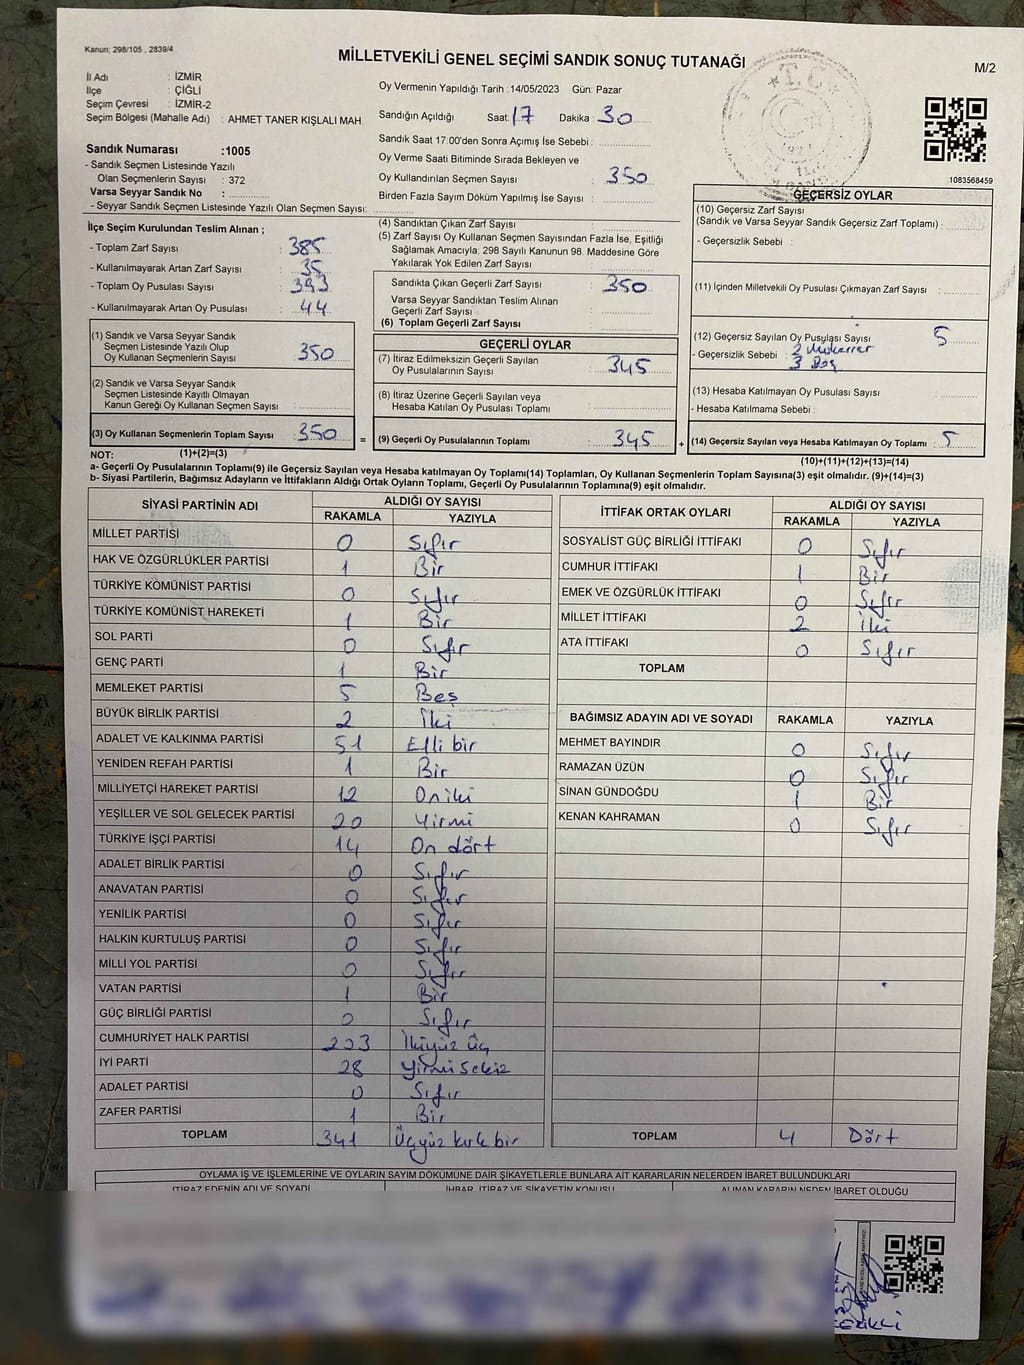 Kanun; 298/105 , 2839/4
MİLLETVEKİLİ GENEL SEÇİMİ SANDIK SONUÇ TUTANAĞI
M/2
İl Adı : İZMİR
İlçe : ÇİĞLİ
Seçim Çevresi : İZMİR-2
Seçim Bölgesi (Mahalle Adı) : AHMET TANER KIŞLALI MAH.
Sandık Numarası :1005
- Sandık Seçmen Listesinde Yazılı
Olan Seçmenlerin Sayısı : 372
Varsa Seyyar Sandık No :
- Seyyar Sandık Seçmen Listesinde Yazılı Olan Seçmen Sayısı:
Oy Vermenin Yapıldığı Tarih :14/05/2023 Gün: Pazar
Sandığın Açıldığı Saat: 17 Dakika : 30
Sandık Saat 17:00'den Sonra Açımış İse Sebebi :
Oy Verme Saati Bitiminde Sırada Bekleyen ve
Oy Kullandırılan Seçmen Sayısı : 350
Birden Fazla Sayım Döküm Yapılmış İse Sayısı :
T.C.
1083568459
İlçe Seçim Kurulundan Teslim Alınan ;
- Toplam Zarf Sayısı : 385
- Kullanılmayarak Artan Zarf Sayısı : 35
- Toplam Oy Pusulası Sayısı : 393
- Kullanılmayarak Artan Oy Pusulası : 44
(1) Sandık ve Varsa Seyyar Sandık
Seçmen Listesinde Yazılı Olup
Oy Kullanan Seçmenlerin Sayısı : 350
(2) Sandık ve Varsa Seyyar Sandık
Seçmen Listesinde Kayıtlı Olmayan
Kanun Gereği Oy Kullanan Seçmen Sayısı :
(3) Oy Kullanan Seçmenlerin Toplam Sayısı : 350
(4) Sandıktan Çıkan Zarf Sayısı :
(5) Zarf Sayısı Oy Kullanan Seçmen Sayısından Fazla İse, Eşitliği
Sağlamak Amacıyla, 298 Sayılı Kanunun 98. Maddesine Göre
Yakılarak Yok Edilen Zarf Sayısı :
Sandıkta Çıkan Geçerli Zarf Sayısı : 350
Varsa Seyyar Sandıktan Teslim Alınan
Geçerli Zarf Sayısı :
(6) Toplam Geçerli Zarf Sayısı :
GEÇERLİ OYLAR
(7) İtiraz Edilmeksizin Geçerli Sayılan
Oy Pusulalarının Sayısı : 345
(8) İtiraz Üzerine Geçerli Sayılan veya
Hesaba Katılan Oy Pusulası Toplamı :
= (9) Geçerli Oy Pusulalarının Toplamı : 345
GEÇERSİZ OYLAR
(10) Geçersiz Zarf Sayısı
(Sandık ve Varsa Seyyar Sandık Geçersiz Zarf Toplamı) :
- Geçersizlik Sebebi :
(11) İçinden Milletvekili Oy Pusulası Çıkmayan Zarf Sayısı :
(12) Geçersiz Sayılan Oy Pusulası Sayısı : 5
- Geçersizlik Sebebi : 2 Mükerrer
3 Boş
(13) Hesaba Katılmayan Oy Pusulası Sayısı :
- Hesaba Katılmama Sebebi :
+ (14) Geçersiz Sayılan veya Hesaba Katılmayan Oy Toplamı : 5
NOT: (1)+(2)=(3)
(10)+(11)+(12)+(13)=(14)
a- Geçerli Oy Pusulalarının Toplamı(9) ile Geçersiz Sayılan veya Hesaba katılmayan Oy Toplamı(14) Toplamları, Oy Kullanan Seçmenlerin Toplam Sayısına(3) eşit olmalıdır. (9)+(14)=(3)
b- Siyasi Partilerin, Bağımsız Adayların ve İttifakların Aldığı Ortak Oyların Toplamı, Geçerli Oy Pusulalarının Toplamına(9) eşit olmalıdır.
SİYASİ PARTİNİN ADI ALDIĞI OY SAYISI
RAKAMLA YAZIYLA
MİLLET PARTİSİ 0 Sıfır
HAK VE ÖZGÜRLÜKLER PARTİSİ 1 Bir
TÜRKİYE KOMÜNİST PARTİSİ 0 Sıfır
TÜRKİYE KOMÜNİST HAREKETİ 1 Bir
SOL PARTİ 0 Sıfır
GENÇ PARTİ 1 Bir
MEMLEKET PARTİSİ 5 Beş
BÜYÜK BİRLİK PARTİSİ 2 İki
ADALET VE KALKINMA PARTİSİ 51 Elli bir
YENİDEN REFAH PARTİSİ 1 Bir
MİLLİYETÇİ HAREKET PARTİSİ 12 Oniki
YEŞİLLER VE SOL GELECEK PARTİSİ 20 Yirmi
TÜRKİYE İŞÇİ PARTİSİ 14 On dört
ADALET BİRLİK PARTİSİ 0 Sıfır
ANAVATAN PARTİSİ 0 Sıfır
YENİLİK PARTİSİ 0 Sıfır
HALKIN KURTULUŞ PARTİSİ 0 Sıfır
MİLLİ YOL PARTİSİ 0 Sıfır
VATAN PARTİSİ 1 Bir
GÜÇ BİRLİĞİ PARTİSİ 0 Sıfır
CUMHURİYET HALK PARTİSİ 203 İkiyüz üç
İYİ PARTİ 28 Yirmi sekiz
ADALET PARTİSİ 0 Sıfır
ZAFER PARTİSİ 1 Bir
TOPLAM 341 Üçyüz kırk bir
İTTİFAK ORTAK OYLARI ALDIĞI OY SAYISI
RAKAMLA YAZIYLA
SOSYALİST GÜÇ BİRLİĞİ İTTİFAKI 0 Sıfır
CUMHUR İTTİFAKI 1 Bir
EMEK VE ÖZGÜRLÜK İTTİFAKI 0 Sıfır
MİLLET İTTİFAKI 2 İki
ATA İTTİFAKI 0 Sıfır
TOPLAM
BAĞIMSIZ ADAYIN ADI VE SOYADI RAKAMLA YAZIYLA
MEHMET BAYINDIR 0 Sıfır
RAMAZAN ÜZÜN 0 Sıfır
SİNAN GÜNDOĞDU 1 Bir
KENAN KAHRAMAN 0 Sıfır
TOPLAM 4 Dört
OYLAMA İŞ VE İŞLEMLERİNE VE OYLARIN SAYIM DÖKÜMÜNE DAİR ŞİKAYETLERLE BUNLARA AİT KARARLARIN NELERDEN İBARET BULUNDUKLARI
İTİRAZ EDENİN ADI VE SOYADI İHBAR, İTİRAZ VE ŞİKAYETİN KONUSU ALINAN KARARIN NEDEN İBARET OLDUĞU